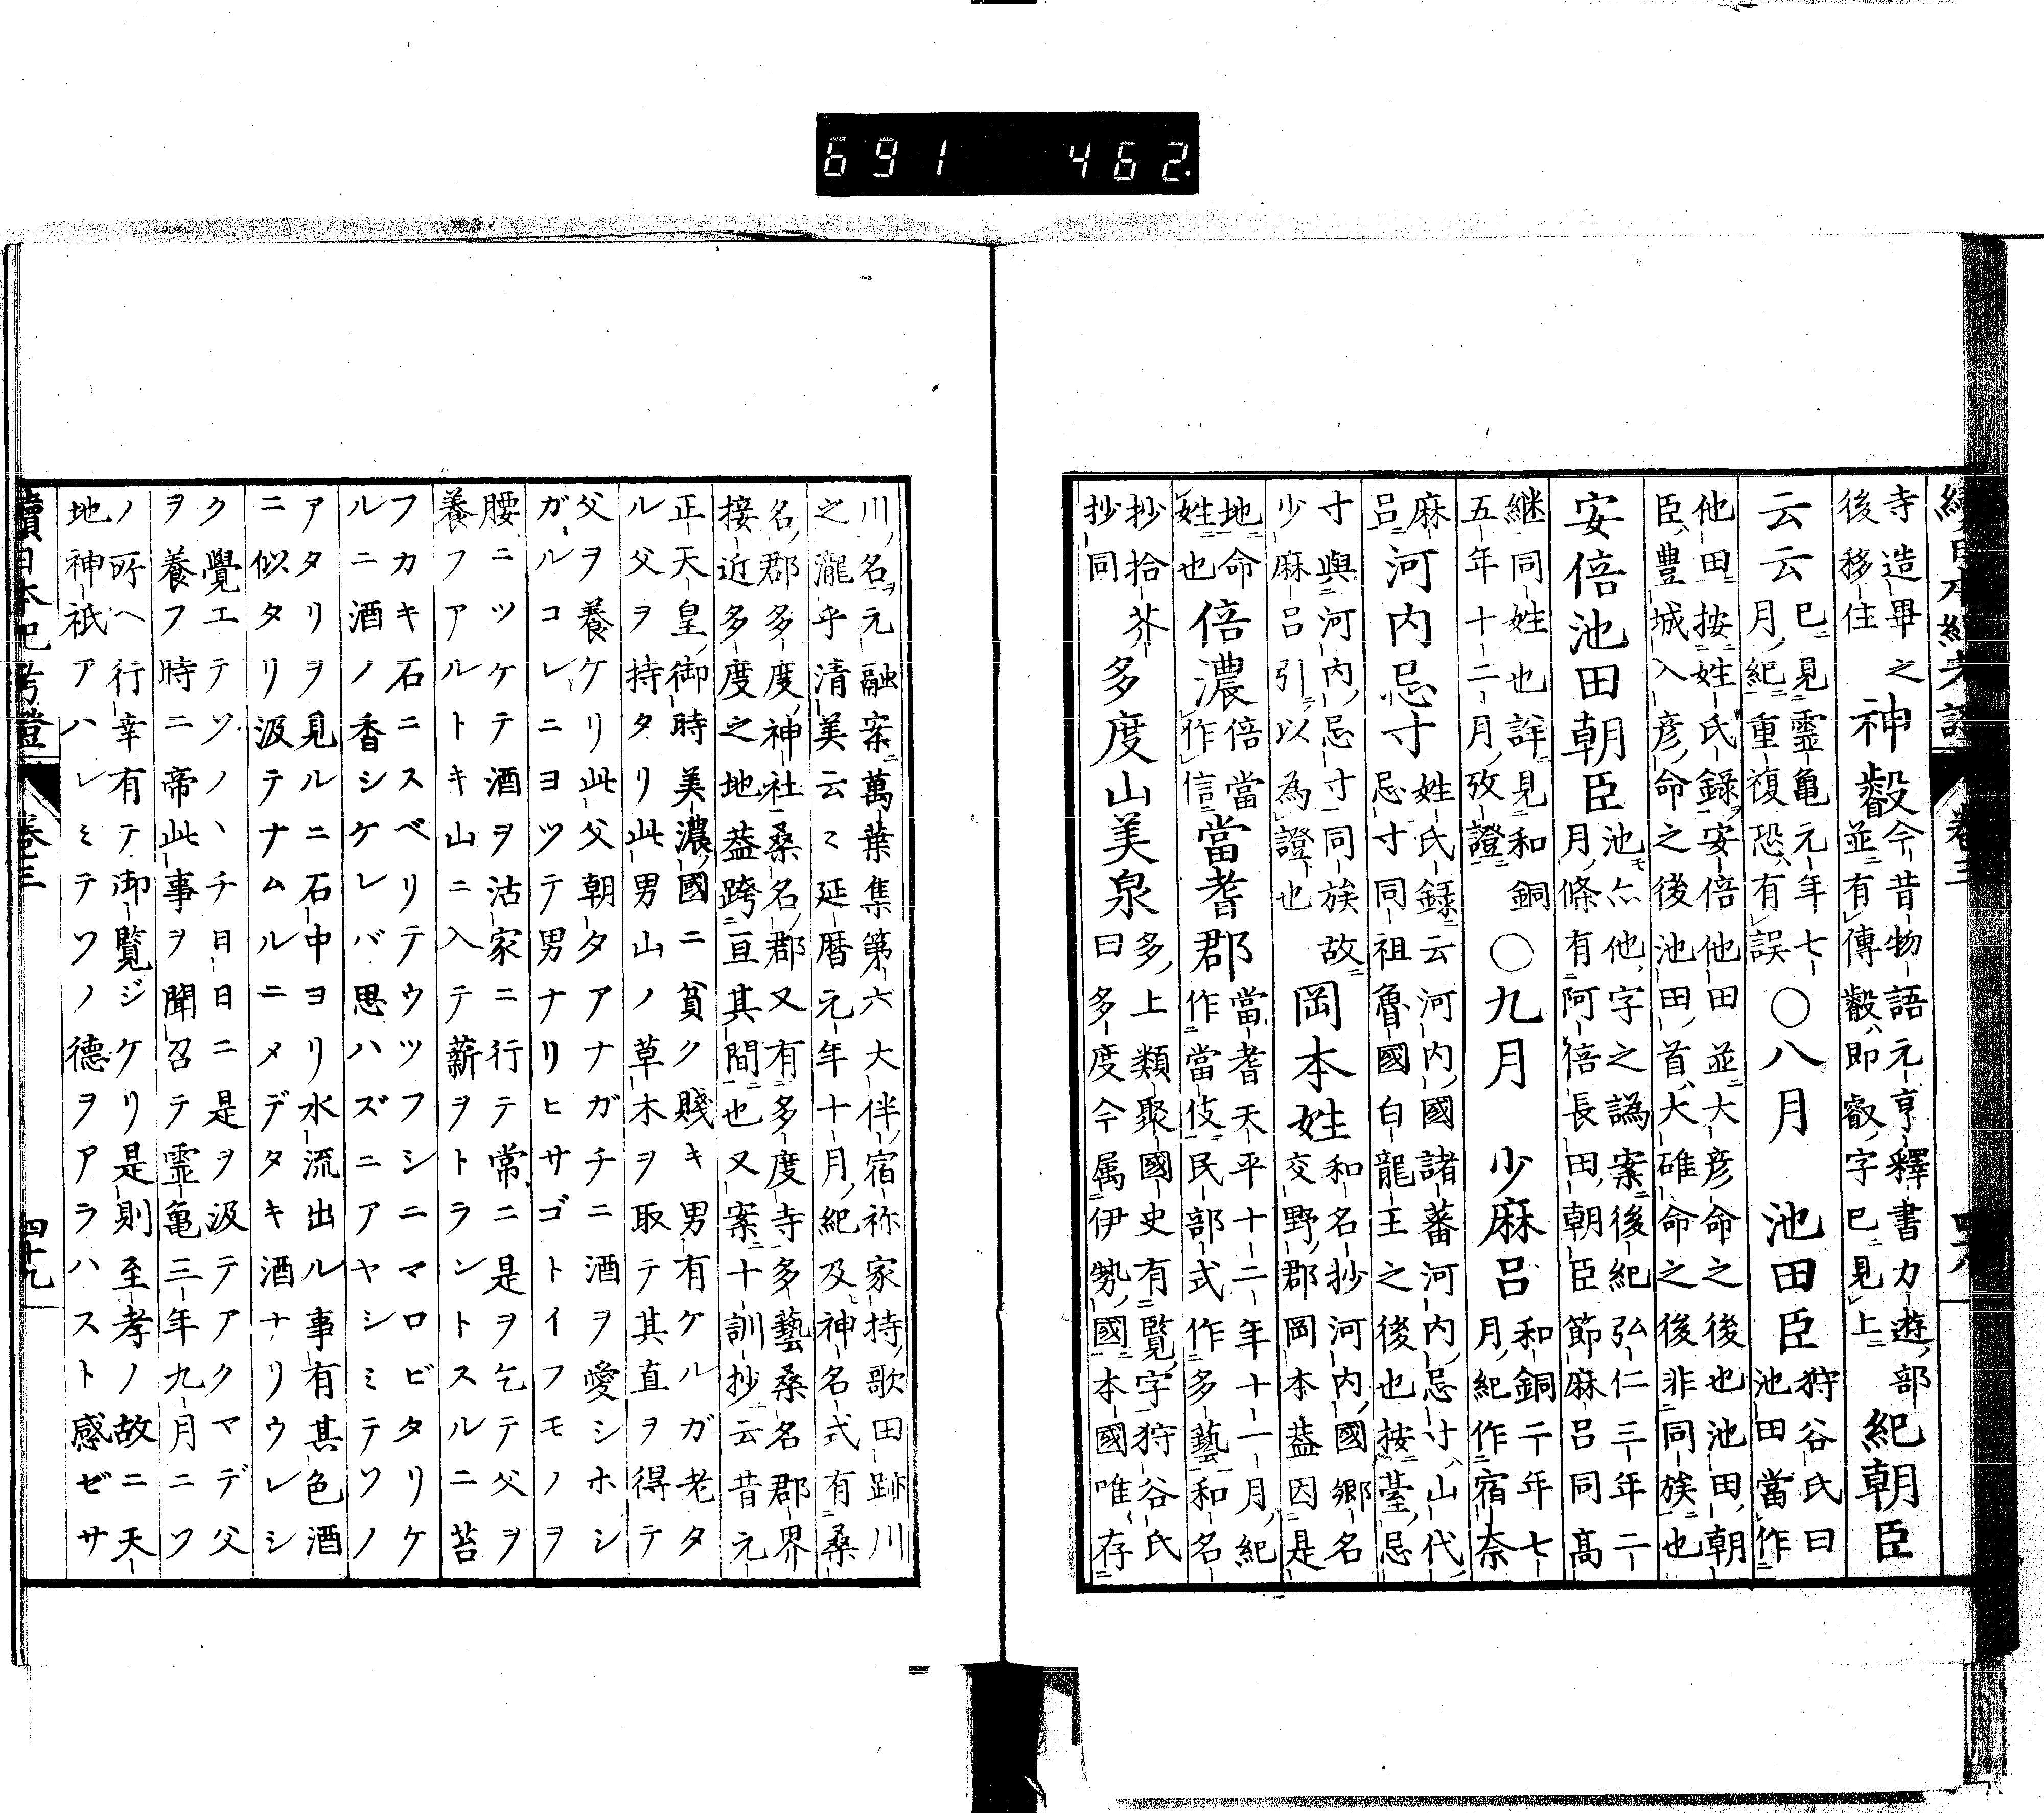 續日本紀考證 卷三 四十八
寺造畢之
後移住
神叡
今昔物語元亨釋書力遊部
並有傳叡即叡字已見上
紀朝臣
云云
已見霊亀元年七
月紀重複恐有誤
〇八月 池田臣
狩谷氏曰
池田當作
他田按姓氏錄安倍他田並大彦命之後也池田朝
臣豊城入彦命之後池田首大碓命之後非同族也
安倍池田朝臣
池亦他字之譌案後紀弘仁三年二
月條有阿倍長田朝臣節麻呂同髙
継同姓也詳見和銅
五年十二月攷證
〇九月 少麻呂
和銅二年七
月紀作宿奈
麻
呂
河内忌寸
姓氏録云河内國諸蕃河内忌寸山代
忌寸同祖魯國白龍王之後也按䑓忌
寸與河内忌寸同族故
少麻呂引以為證也
岡本姓
和名抄河内國郷名
交野郡岡本葢因是
地命
姓也
倍濃
倍當
作信
當耆郡
當耆天平十二年十一月紀
作當伎民部式作多藝和名
抄拾芥
抄同
多度山美泉
多上類聚國史有覽字狩谷氏
曰多度今属伊勢國本國唯存
川名元融案萬葉集第六大伴宿祢家持歌田跡川
之瀧乎清美云〻延暦元年十月紀及神名式有桑
名郡多度神社桑名郡又有多度寺多藝桑名郡界
接近多度之地葢跨亘其間也又案十訓抄云昔元
正天皇御時美濃國ニ貧ク賤キ男有ケルガ老タ
ル父ヲ持タリ此男山ノ草木ヲ取テ其直ヲ得テ
父ヲ養ケリ此父朝タアナガチニ酒ヲ愛シホシ
ガルコレニヨツテ男ナリヒサゴトイフモノヲ
腰ニツケテ酒ヲ沽家ニ行テ常ニ是ヲ乞テ父ヲ
養フアルトキ山ニ入テ薪ヲトラントスルニ苔
フカキ石ニスベリテウツフシニマロビタリケ
ルニ酒ノ香シケレバ思ハズニアヤシミテソノ
アタリヲ見ルニ石中ヨリ水流出ル事有其色酒
ニ似タリ汲テナムルニメデタキ酒ナリウレシ
ク覺エテソノヽチ日日ニ是ヲ汲テアクマデ父
ヲ養フ時ニ帝此事ヲ聞召テ霊亀三年九月ニソ
ノ所ヘ行幸有テ御覽ジケリ是則至孝ノ故ニ天
地神祇アハレミテソノ德ヲアラハスト感ゼサ
續日本紀考證 卷三 四十九
691 462